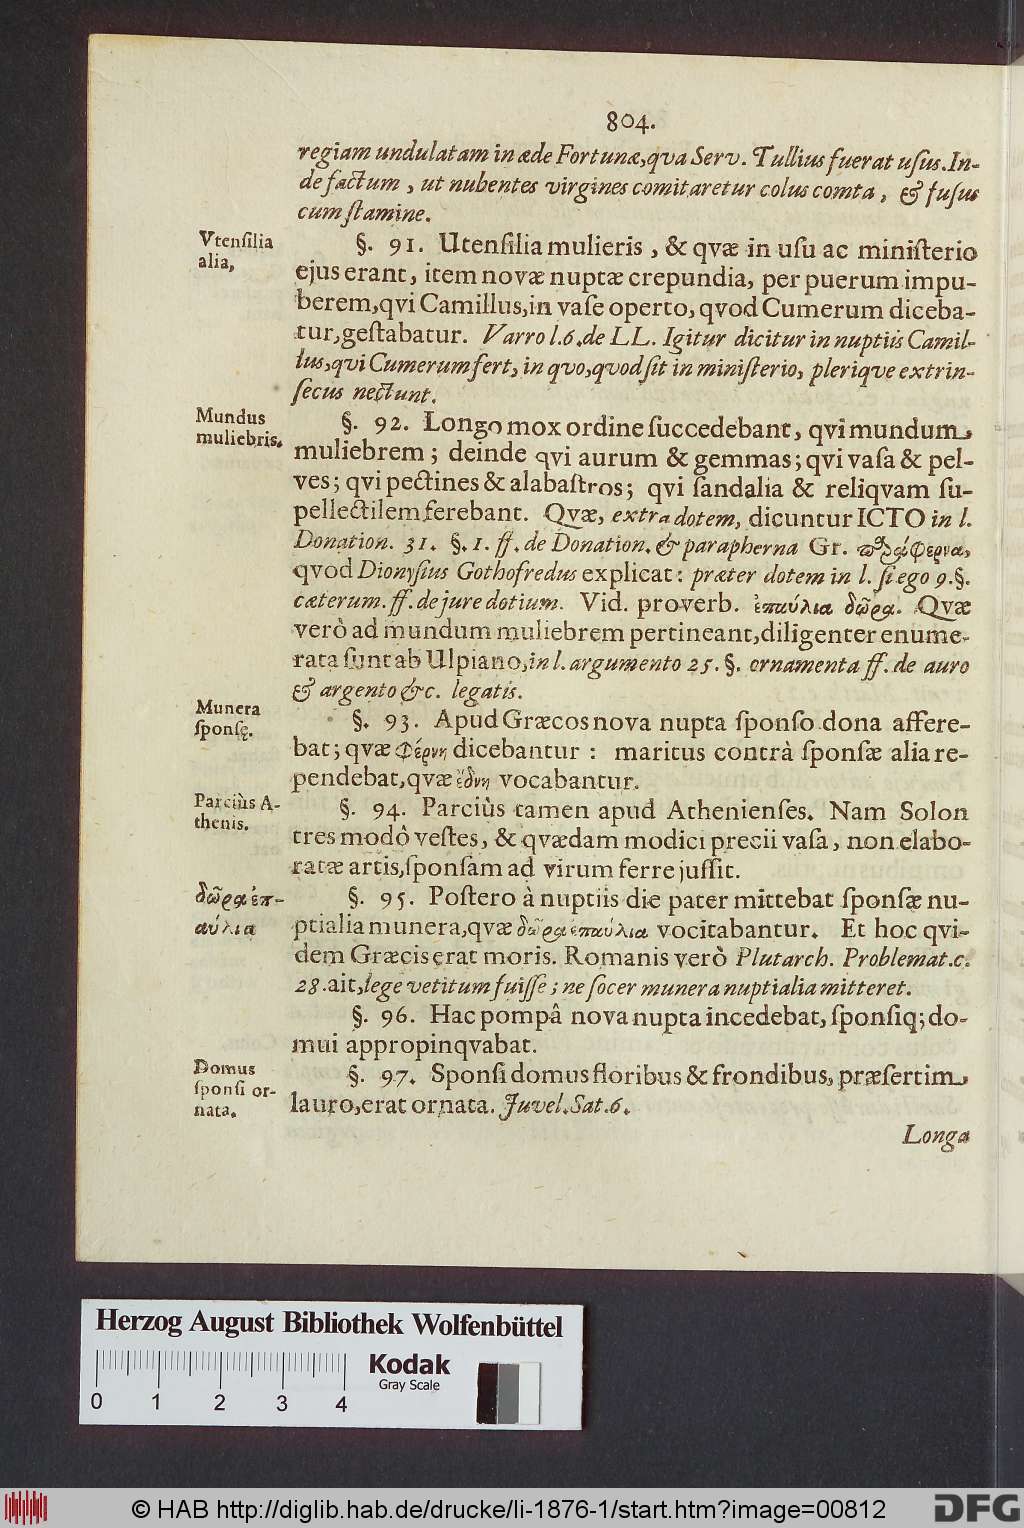 804.
regiam undulatam in æde Fortunæ, qva Serv. Tullius fuerat uſus. In-
de factum, ut nubentes virgines comitaretur colus comta, & fuſus
cum ſtamine.
Vtenſilia
alia,
§. 91. Utenſilia mulieris, & qvæ in uſu ac miniſterio
ejus erant, item novæ nuptæ crepundia, per puerum impu-
berem, qvi Camillus, in vaſe operto, qvod Cumerum diceba-
tur, geſtabatur. Varro l. 6. de LL. Igitur dicitur in nuptiis Camil-
lus, qvi Cumerum fert, in qvo, qvod ſit in miniſterio, pleriqve extrin-
ſecus nectunt.
Mundus
muliebris.
§. 92. Longo mox ordine ſuccedebant, qvi mundum
muliebrem; deinde qvi aurum & gemmas; qvi vaſa & pel-
ves; qvi pectines & alabaſtros; qvi ſandalia & reliqvam ſu-
pellectilem ferebant. Qvæ, extra dotem, dicuntur ICTO in l.
Donation. 31. §. 1. ff. de Donation. & parapherna Gr. παράφερνα,
qvod Dionyſius Gothofredus explicat: præter dotem in l. ſi ego 9. §.
cæterum. ff. de jure dotium. Vid. proverb. ἐπαύλια δῶρα. Qvæ
verò ad mundum muliebrem pertineant, diligenter enume-
rata ſunt ab Ulpiano, in l. argumento 25. §. ornamenta ff. de auro
& argento &c. legatis.
Munera
ſponſę.
§. 93. Apud Græcos nova nupta ſponſo dona affere-
bat; qvæ φέρνη dicebantur: maritus contrà ſponſæ alia re-
pendebat, qvæ ἕδνη vocabantur.
Parciùs A-
thenis.
§. 94. Parciùs tamen apud Athenienſes. Nam Solon
tres modò veſtes, & qvædam modici precii vaſa, non elabo-
ratæ artis, ſponſam ad virum ferre juſſit.
δῶρα ἐπ-
αύλια
§. 95. Poſtero à nuptiis die pater mittebat ſponſæ nu-
ptialia munera, qvæ δῶρα ἐπαύλια vocitabantur. Et hoc qvi-
dem Græcis erat moris. Romanis verò Plutarch. Problemat. c.
28. ait, lege vetitum fuiſſe; ne ſocer munera nuptialia mitteret.
§. 96. Hac pompâ nova nupta incedebat, ſponſiq; do-
mui appropinqvabat.
Domus
ſponſi or-
nata.
§. 97. Sponſi domus floribus & frondibus, præſertim
lauro, erat ornata. Juvel. Sat. 6.
Longa
Herzog August Bibliothek Wolfenbüttel
Kodak
Gray Scale
0 1 2 3 4
© HAB http://diglib.hab.de/drucke/li-1876-1/start.htm?image=00812
DFG